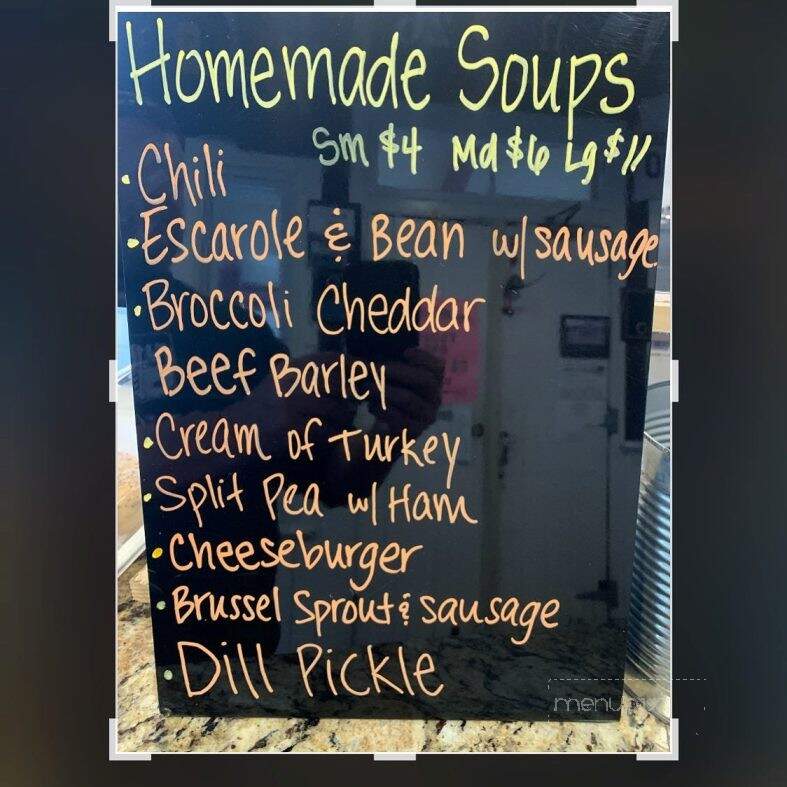 Homemade Soups
Sm $4 Md $6 Lg $11
• Chili
• Escarole & Bean w/ sausage
• Broccoli Cheddar
Beef Barley
• Cream of Turkey
• Split Pea w/ Ham
• Cheeseburger
• Brussel Sprout & sausage
• Dill Pickle